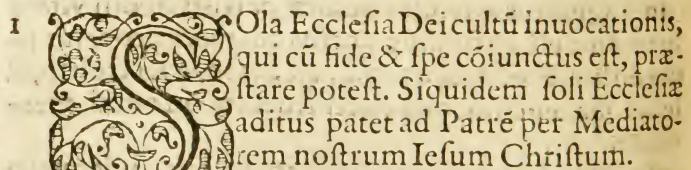 1 SOla Ecclesia Dei cultū inuocationis,
qui cū fide & spe cōiunctus est, præ-
stare potest. Siquidem soli Ecclesiæ
aditus patet ad Patrē per Mediato-
rem nostrum Iesum Christum.